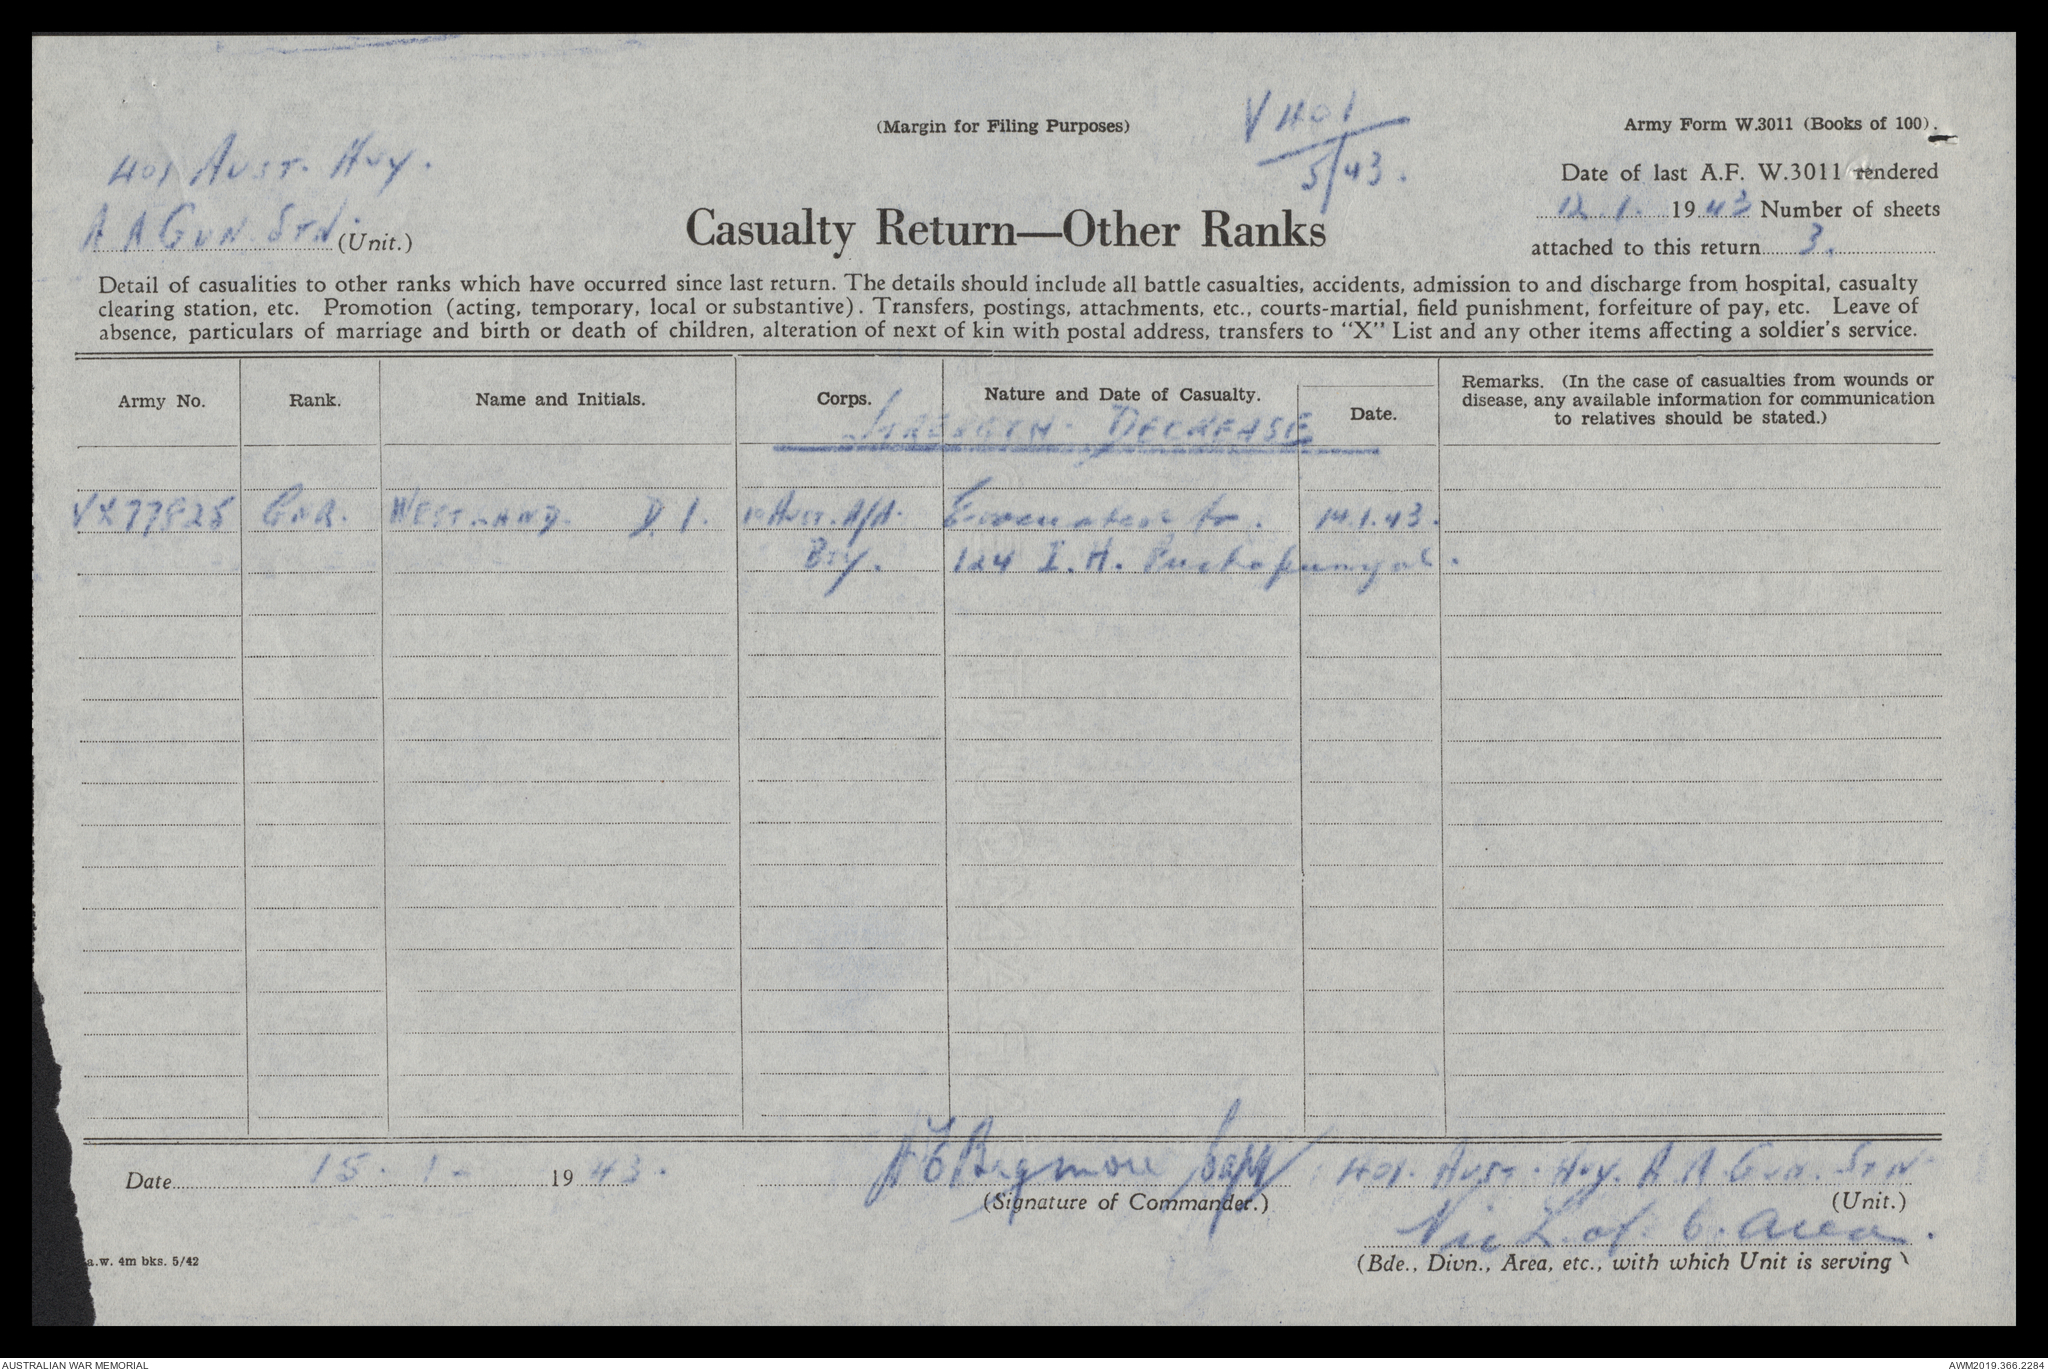 (Margin for Filing Purposes)
V 401
5/43.
Army Form W.3011 (Books of 100).
401 Aust. Hvy.
A A Gun. Stn. (Unit.)
Casualty Return—Other Ranks
Date of last A.F. W.3011 rendered
12. 1. 1943 Number of sheets
attached to this return 3.
Detail of casualities to other ranks which have occurred since last return. The details should include all battle casualties, accidents, admission to and discharge from hospital, casualty
clearing station, etc. Promotion (acting, temporary, local or substantive). Transfers, postings, attachments, etc., courts-martial, field punishment, forfeiture of pay, etc. Leave of
absence, particulars of marriage and birth or death of children, alteration of next of kin with postal address, transfers to "X" List and any other items affecting a soldier's service.
Army No. Rank. Name and Initials. Corps. Nature and Date of Casualty. Date. Remarks. (In the case of casualties from wounds or
disease, any available information for communication
to relatives should be stated.)
Strength Decrease
VX77825 Gnr. D. I. Aust. A/A. Evacuated to. 14.1.43.
Bty. 124 I. H. Puckapunyal.
Date 15. 1. 1943.
(Signature of Commander.)
401. Aust. Hvy. A A Gun. Stn.
(Unit.)
Vic L. of C. Area.
(Bde., Divn., Area, etc., with which Unit is serving
a.w. 4m bks. 5/42
AUSTRALIAN WAR MEMORIAL
AWM2019.366.2284